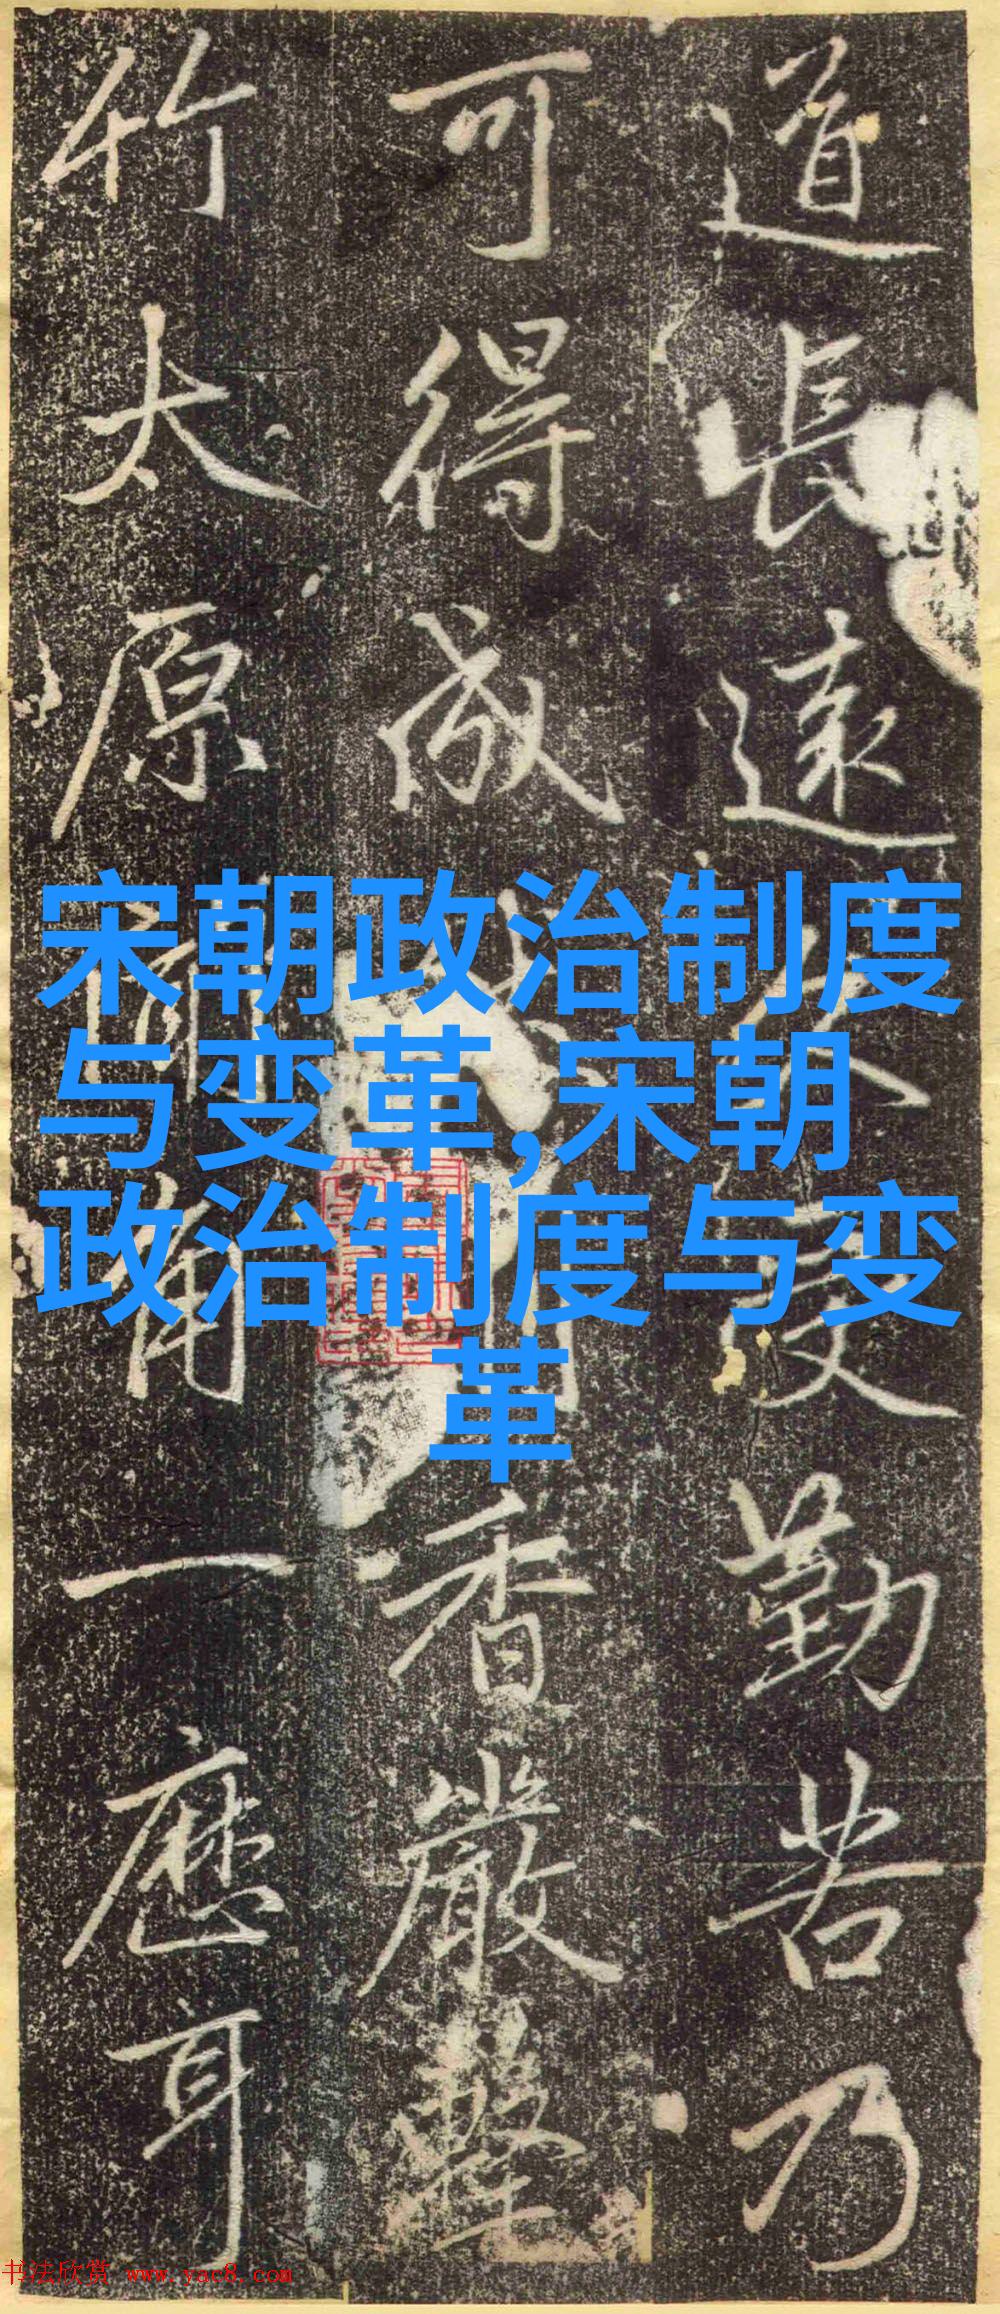 道長遠久受勤苦乃
可得成香嚴擊
竹太原聞角一應耳
宋朝政治制度
与变革,宋朝
政治制度与变
革
书法欣赏 www.yac8.com